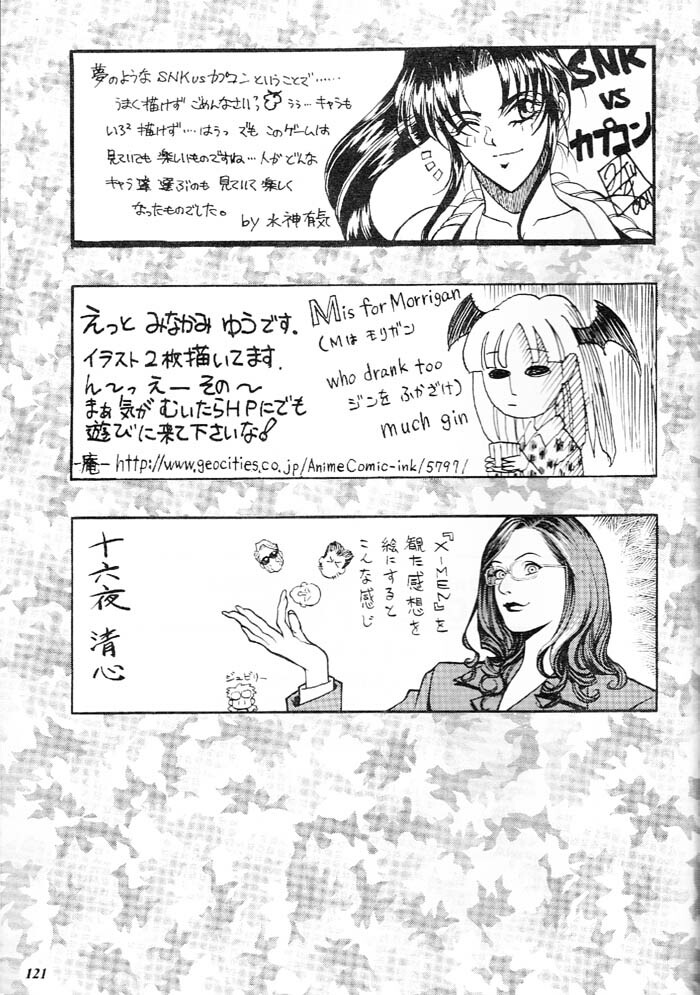 夢のような SNK vs カプコン ということで……
うまく描けず ごめんなさい? うぅ… キャラも
いろ² 描けず…… はうっ でも このゲームは
見ていても 楽しいものですね… 人が どんな
キャラ達 選ぶのも 見ていて 楽しく
なったものでした。
by 水神有気
SNK
vs
カプコン
えっと みなかみ ゆうです.
イラスト2枚描いてます.
ん~っ えー その~
まぁ 気が むいたらHPにでも
遊びに来て下さいな!
-庵- http://www.geocities.co.jp/AnimeComic-ink/5797/
M is for Morrigan
(Mは モリガン
who drank too
ジンを ふかざけ)
much gin
十六夜 清心
『X-MEN』を
観た感想を
絵にすると
こんな感じ
ジュビリー
121